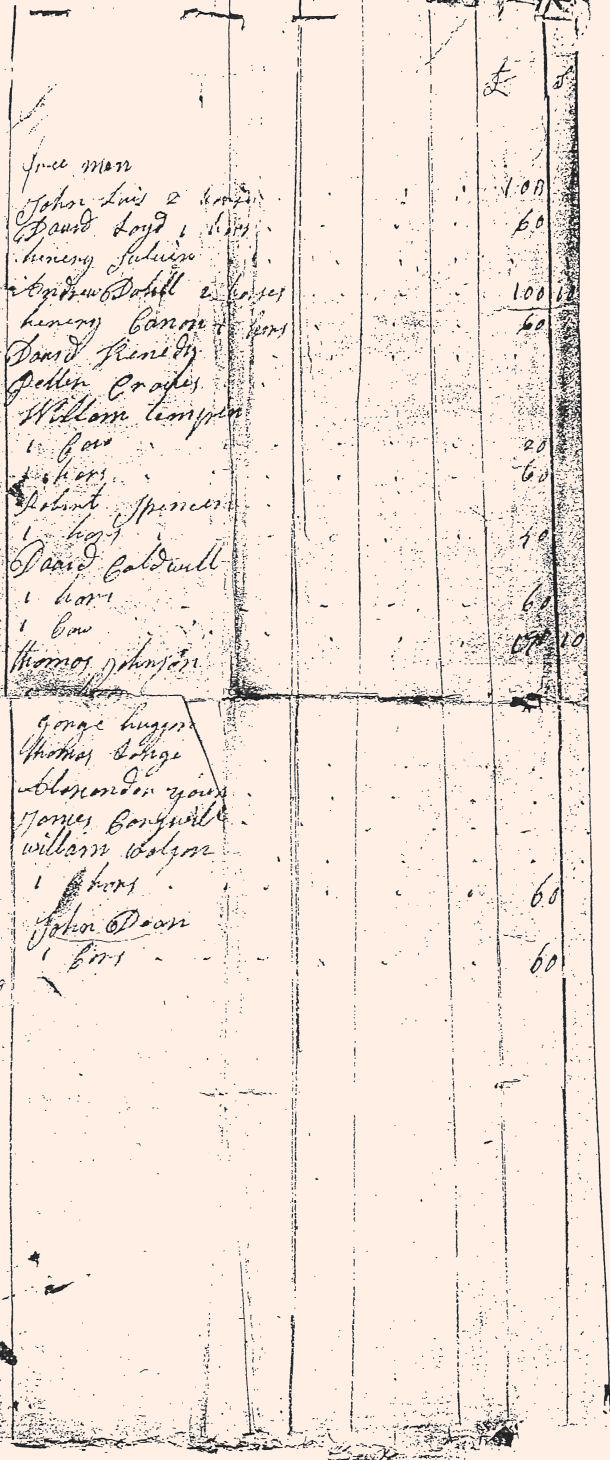 £ s
free men
John Luis 2 horses 100
David Loyd 1 hors 60
henery
Andrew Dohill 2 horses 100 10
henery Canon 1 hors 60
David Kenedy
Petter Craves
Willam
1 Cow 20
1 hors 60
Robint Spencer
1 hors 40
David Coldwill
1 hors 60
1 Cow 10
thomas Johnson
gorge huggon
thomas Longe
Alexander youn
James
willam watson
1 hors 60
John Dean
1 hors 60